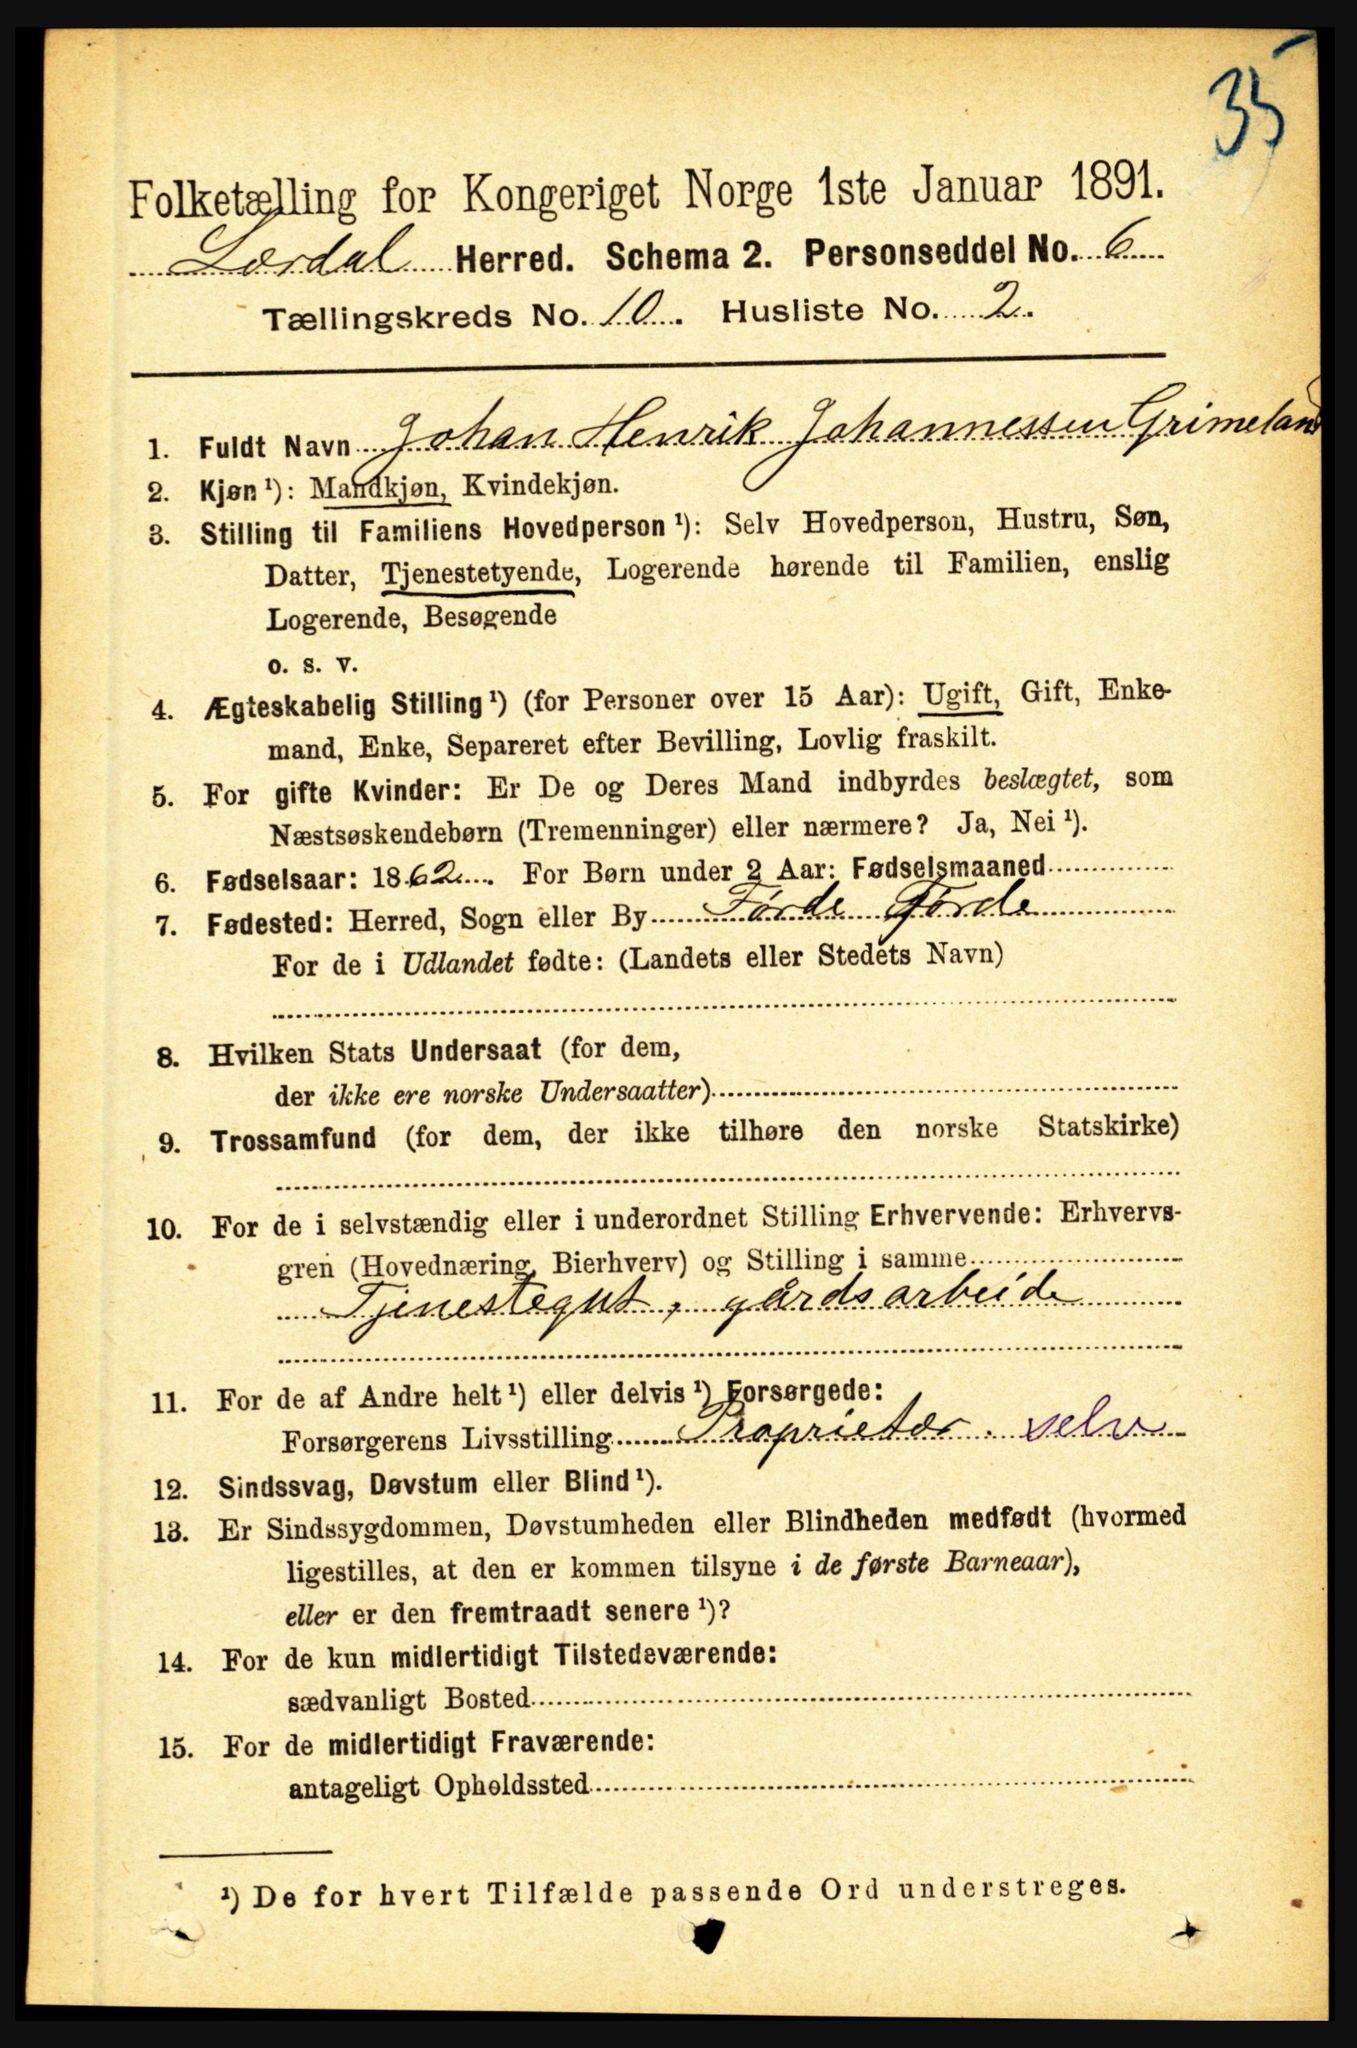 35
Folketælling for Kongeriget Norge 1ste Januar 1891.
Lærdal Herred. Schema 2. Personseddel No. 6
Tællingskreds No. 10. Husliste No. 2.
1. Fuldt Navn Johan Henrik Johannessen Grimeland
2. Kjøn ¹): Mandkjøn, Kvindekjøn.
3. Stilling til Familiens Hovedperson ¹): Selv Hovedperson, Hustru, Søn,
Datter, Tjenestetyende, Logerende hørende til Familien, enslig
Logerende, Besøgende
o. s. v.
4. Ægteskabelig Stilling ¹) (for Personer over 15 Aar): Ugift, Gift, Enke-
mand, Enke, Separeret efter Bevilling, Lovlig fraskilt.
5. For gifte Kvinder: Er De og Deres Mand indbyrdes beslægtet, som
Næstsøskendebørn (Tremenninger) eller nærmere? Ja, Nei ¹).
6. Fødselsaar: 1862. For Børn under 2 Aar: Fødselsmaaned
7. Fødested: Herred, Sogn eller By Førde Førde
For de i Udlandet fødte: (Landets eller Stedets Navn)
8. Hvilken Stats Undersaat (for dem,
der ikke ere norske Undersaatter)
9. Trossamfund (for dem, der ikke tilhøre den norske Statskirke)
10. For de i selvstændig eller i underordnet Stilling Erhvervende: Erhvervs-
gren (Hovednæring, Bierhverv) og Stilling i samme
Tjenestegut, gårdsarbeide
11. For de af Andre helt ¹) eller delvis ¹) Forsørgede:
Forsørgerens Livsstilling Proprietær. selv
12. Sindssvag, Døvstum eller Blind ¹).
13. Er Sindssygdommen, Døvstumheden eller Blindheden medfødt (hvormed
ligestilles, at den er kommen tilsyne i de første Barneaar),
eller er den fremtraadt senere ¹)?
14. For de kun midlertidigt Tilstedeværende:
sædvanligt Bosted
15. For de midlertidigt Fraværende:
antageligt Opholdssted
¹) De for hvert Tilfælde passende Ord understreges.